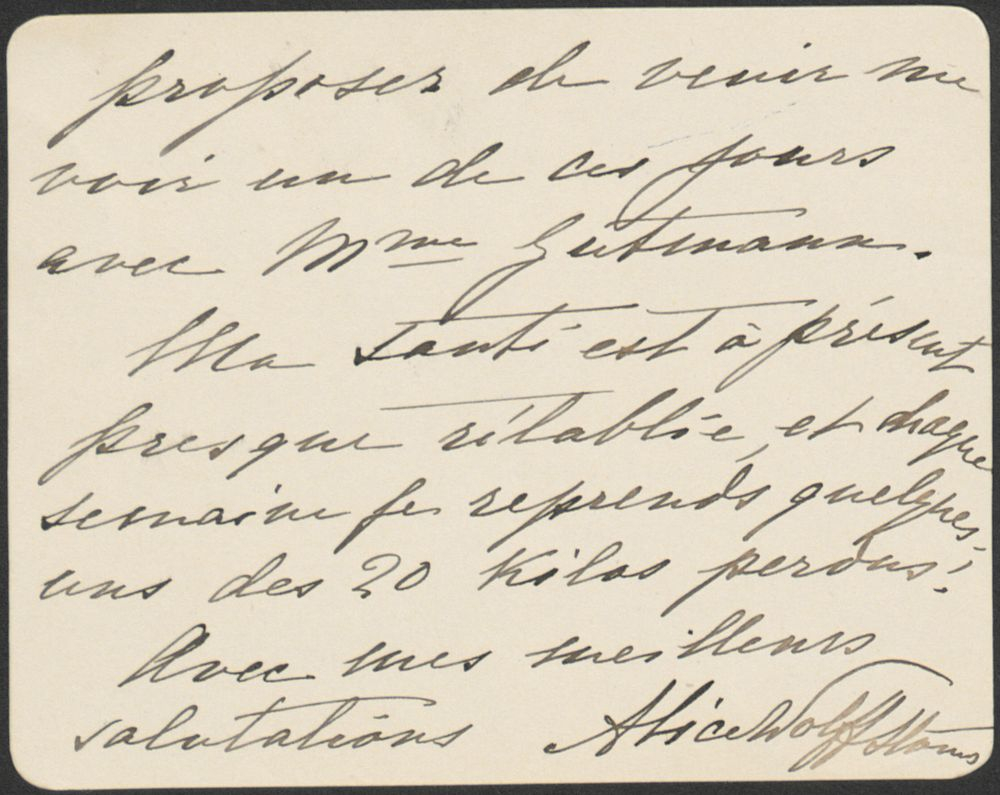 proposer de venir me
voir un de ces jours
avec Mme Gutmann.
Ma santé est à présent
presque rétablie, et chaque
semaine je reprends quelques-
uns des 20 Kilos perdus!
Avec mes meilleurs
salutations Alice Wolff